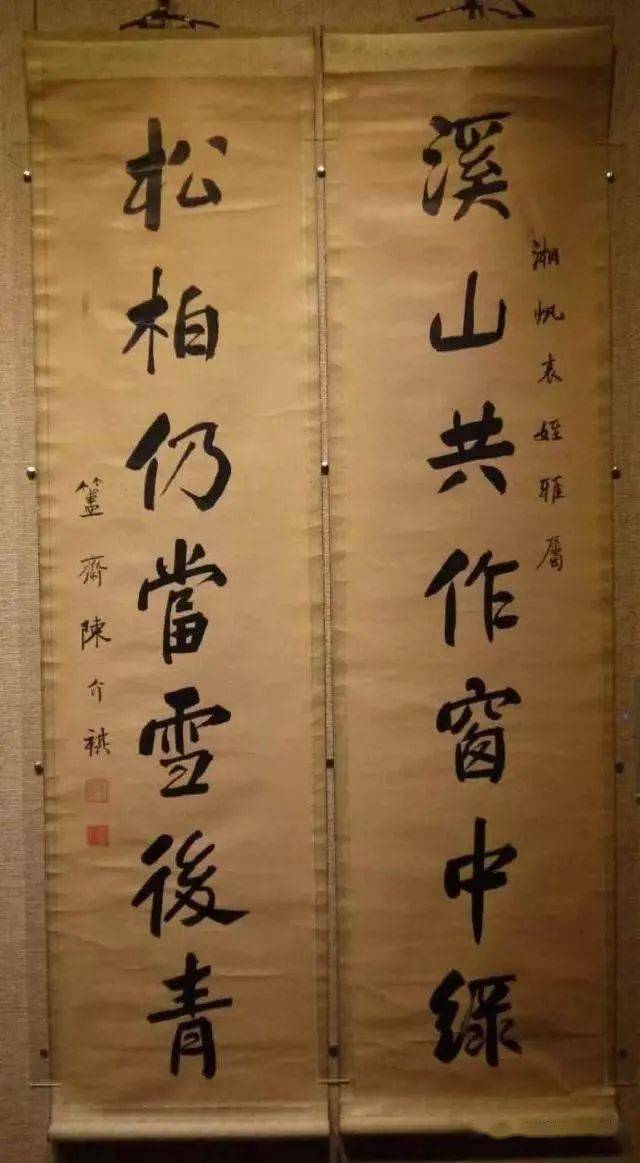 湘帆表姪雅屬
溪山共作窗中綠
松柏仍當雪後青
簠齋陳介祺